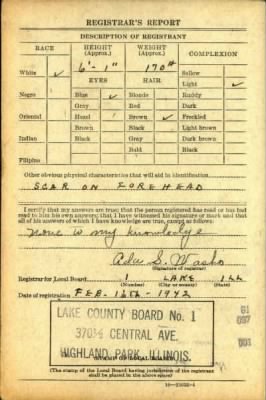 REGISTRAR'S REPORT
DESCRIPTION OF REGISTRANT
RACE HEIGHT (Approx.) WEIGHT (Approx.) COMPLEXION
6'-1" 170# Sallow
White ✓ EYES HAIR Light ✓
Negro Blue ✓ Blonde Ruddy
Gray Red Dark
Oriental Hazel Brown ✓ Freckled
Brown Black Light brown
Indian Black Gray Dark brown
Bald Black
Filipino
Other obvious physical characteristics that will aid in identification
SCAR ON FOREHEAD
I certify that my answers are true; that the person registered has read or has
had read to him his own answers; that I have witnessed his signature or mark and that
all of his answers of which I have knowledge are true, except as follows:
None to my knowledge
Ada S.
(Signature of registrar)
Registrar for Local Board 1 LAKE ILL
(Number) (City or county) (State)
Date of registration FEB-16th-1942
LAKE COUNTY BOARD No. 1
CENTRAL AVE.
HIGHLAND PARK, ILLINOIS.
STAMP OF LOCAL BOARD
(The stamp of the Local Board having jurisdiction of the registrant
shall be placed in the above space)